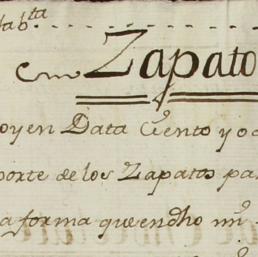 Zapato
oy en Data Ciento y oc
porte de los Zapatos pa
a forma que en dho m.^